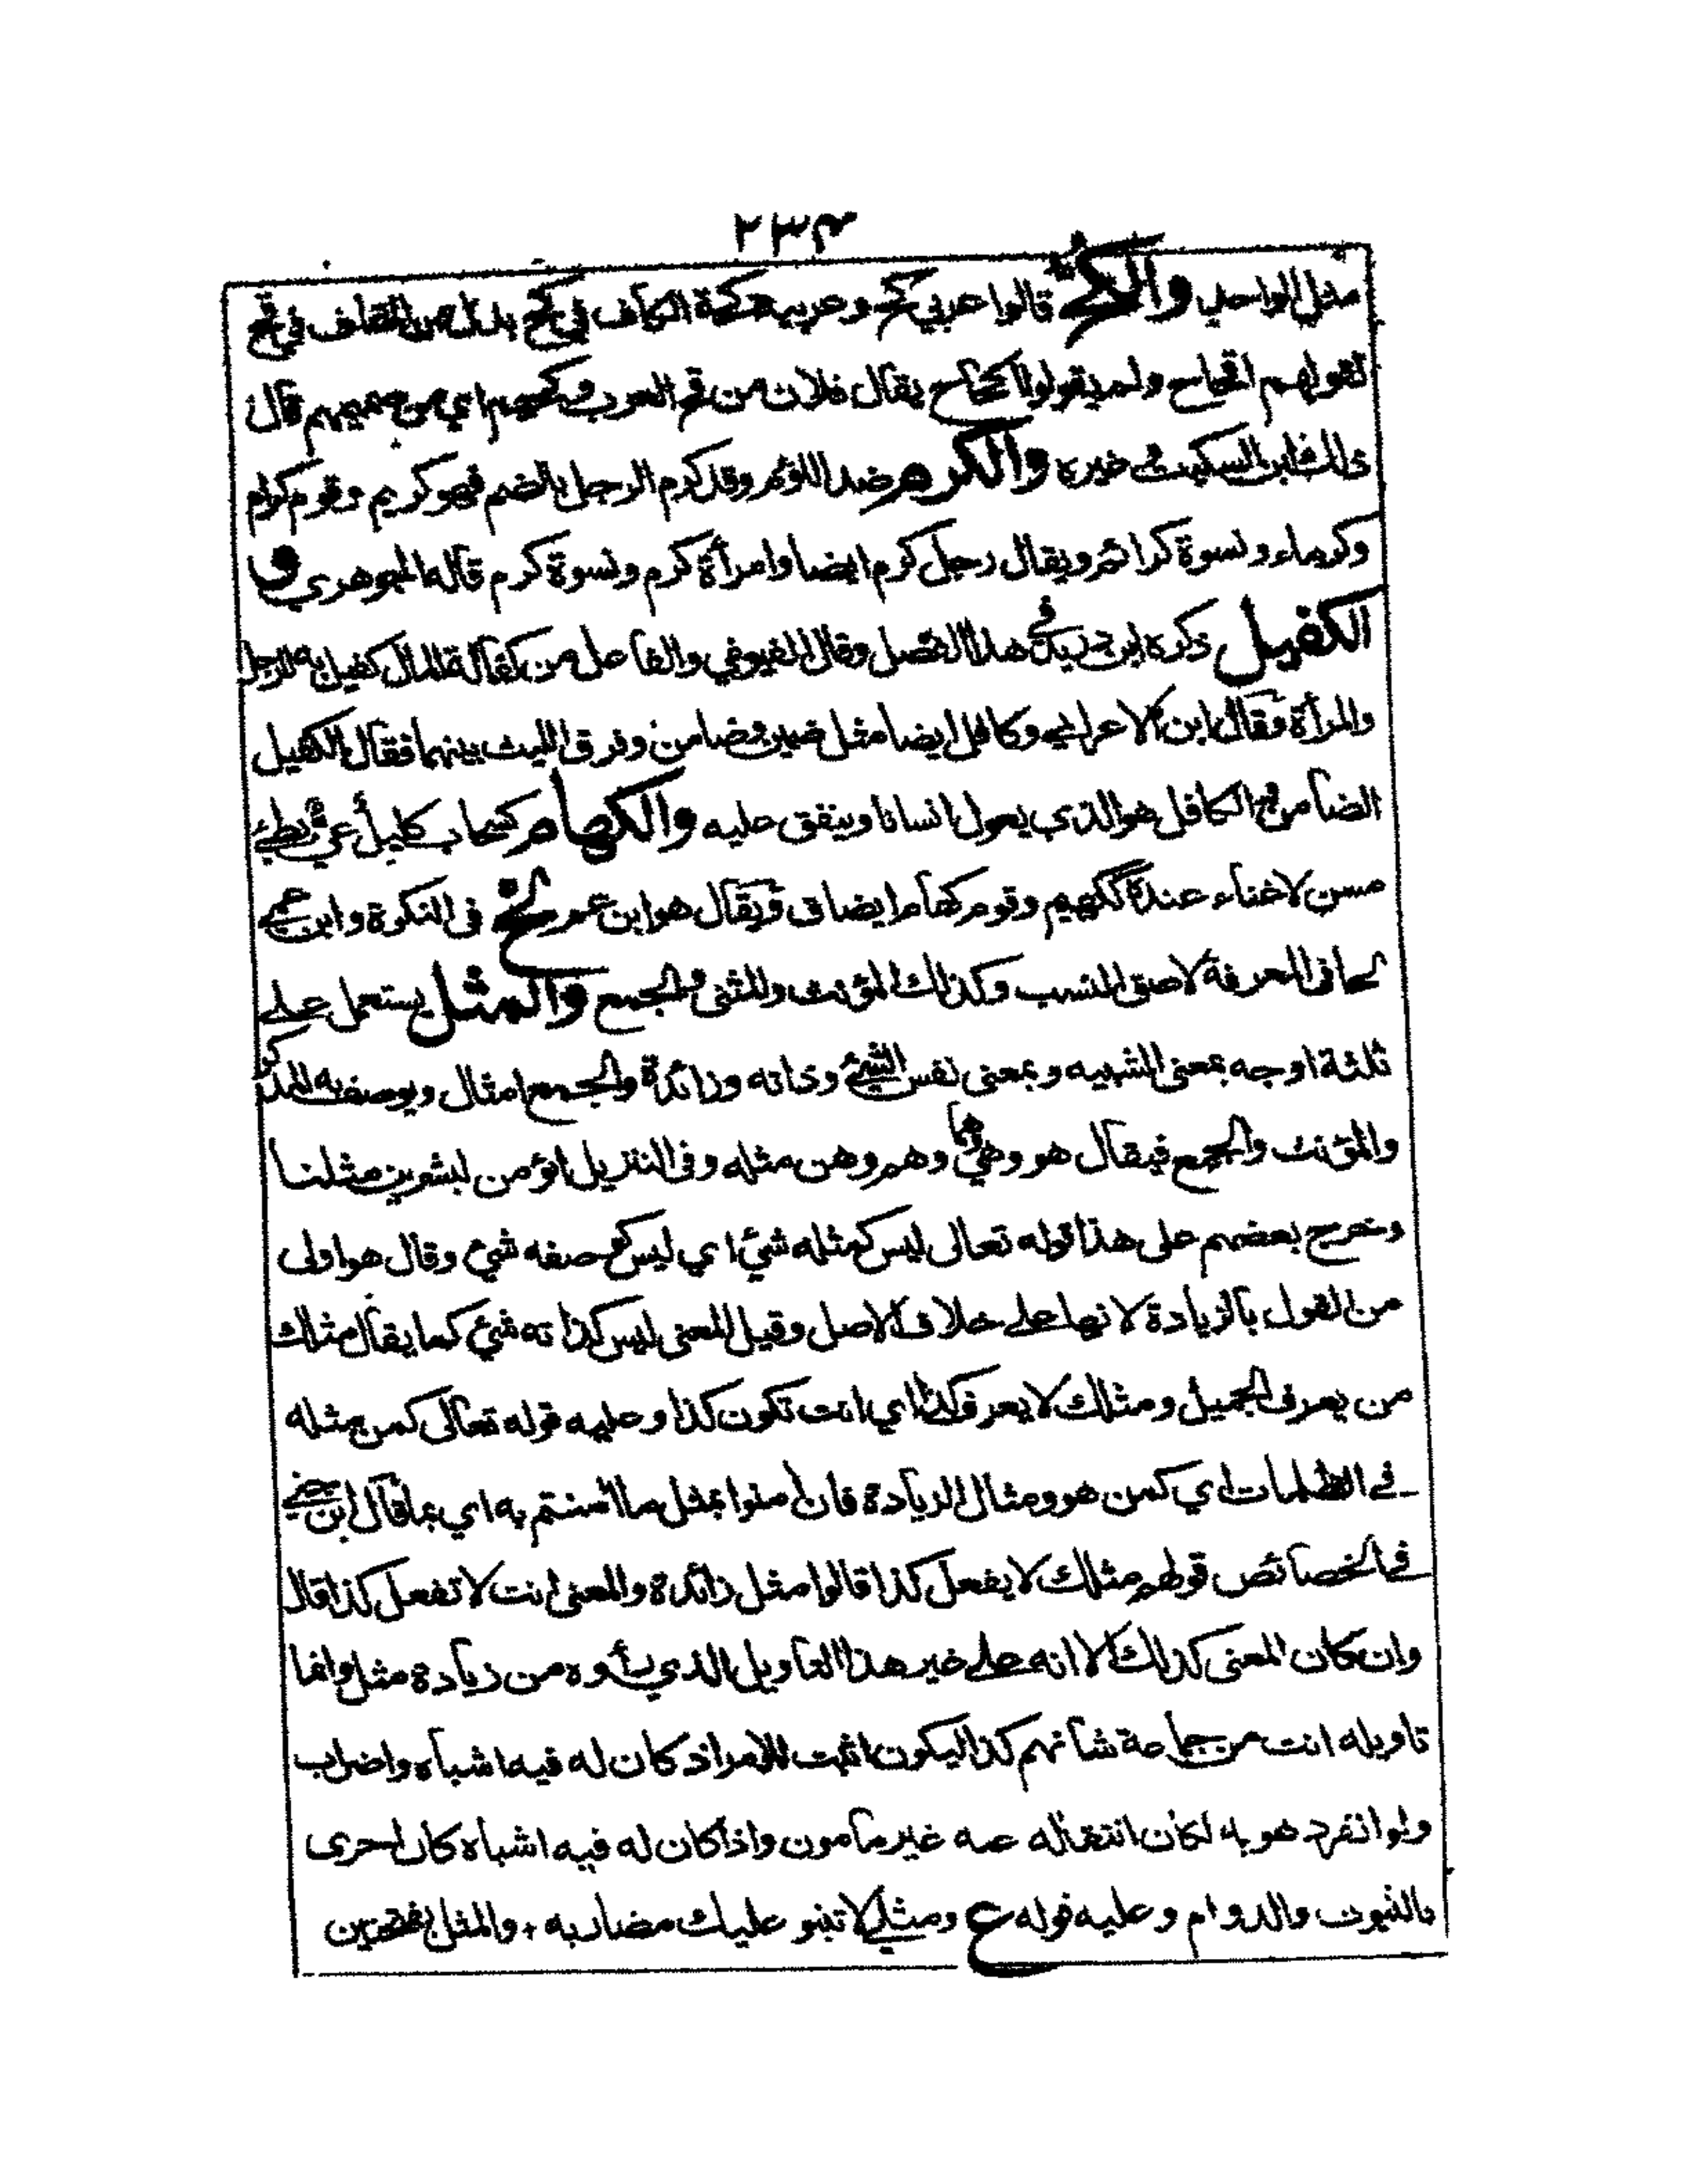 ٢٣٤
مثل الواحد والكُحّ قالوا عربي كح وعربيه كحة الكاف في كح بدل من القاف في قح
لقولهم اقحاح ولم يقولوا اكحاح يقال فلان من قح العرب وكحهم اي من صميمهم قال
ذلك ابن السكيت وغيره والكرم ضد اللؤم وقد كرم الرجل بالضم فهو كريم وقوم كرام
وكرماء ونسوة كرائم ويقال رجل كرم ايضا وامرأة كرم ونسوة كرم قاله الجوهري و
الكفيل ذكره ابن دريد في هذا الفصل وقال الفيومي والفاعل من كفالة المال كفيل به للرجل
والمرأة وقال ابن الاعرابي وكافل ايضا مثل ضمين وضامن وفرق الليث بينهما فقال الكفيل
الضامن والكافل هو الذي يعول انسانا وينفق عليه والكهام كسحاب كليل عيي بطئ
مسن لا غناء عنده ككهيم وقوم كهام ايضا ق ويقال هو ابن عم لح في النكرة وابن عمي
لحا في المعرفة لاصق النسب وكذلك المؤنث والمثنى والجمع والمثل يستعمل على
ثلثة اوجه بمعنى الشبيه وبمعنى نفس الشيئ وذاته وزائدة والجمع امثال ويوصف به المذكر
والمؤنث والجمع فيقال هو وهي وهما وهم وهن مثله وفي التنزيل انؤمن لبشرين مثلنا
وخرج بعضهم على هذا قوله تعالى ليس كمثله شيئ اي ليس كوصفه شيئ وقال هو اولى
من القول بالزيادة لانها على خلاف الاصل وقيل المعنى ليس كذاته شيئ كما يقال مثلك
من يعرف الجميل ومثلك لا يعرف كذا اي انت تكون كذا وعليه قوله تعالى كمن مثله
في الظلمات اي كمن هو ومثال الزيادة فان امنوا بمثل ما امنتم به اي بما قال ابن جني
في الخصائص قولهم مثلك لا يفعل كذا قالوا مثل زائدة والمعنى انت لا تفعل كذا قال
وان كان المعنى كذلك الا انه على غير هذا التاويل الذي رأوه من زيادة مثل وانما
تاويله انت من جماعة شأنهم كذا ليكون اثبت للامر اذ كان له فيه اشباه واضراب
ولو انفرد هو به لكان انتقاله عنه غير مأمون واذا كان له فيه اشباه كان احرى
بالثبوت والدوام وعليه قوله ع ومثلي لا تنبو عليك مضاربه + والمثل بفتحتين